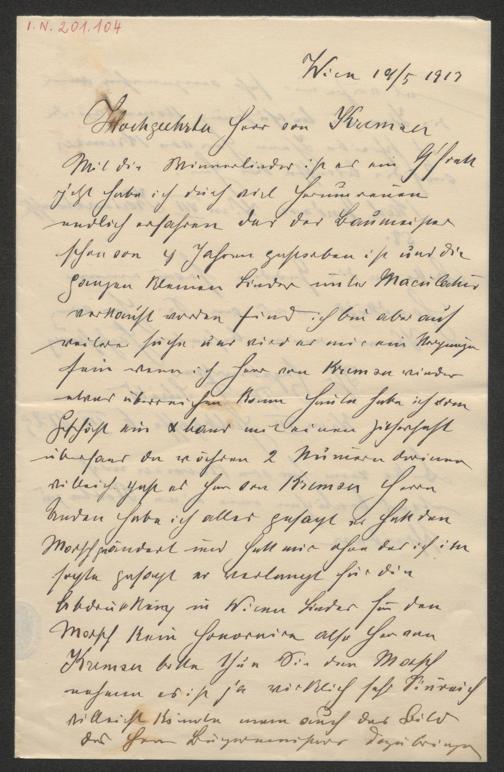 I.N. 201.104
Wien 18/5 1913
Hochgeehrter Herr von Kremser
Mit die Wienerlieder ist es ein G'frett
jetzt habe ich durch viel herumrennen
endlich erfahren das der Baumeister
schon von 4 Jahren gestorben ist und die
ganzen kleinen Lieder unter Maculatur
verkauft worden sind ich bin aber auf
weitere suche und wird es mir ein Vergnügen
sein wenn ich Herr von Kremser wieder
etwas überreichen kann heute habe ich dem
ein Band mit einen
da währen 2 Numern drinen
vileich geht es Herr von Kremser Herrn
habe ich alles gesagt er hat den
Marsch und hatt mir ohne das ich ihm
sagte gesagt er verlangt für die
Abdruckung in Wiener Lieder für den
Marsch kein Honorar also Herr von
Kremser bitte thun Sie den Marsch
nehmen es ist ja wirklich sehr
vileicht könnte mann auch das Bild
des Herrn Bürgermeisters dazubringen